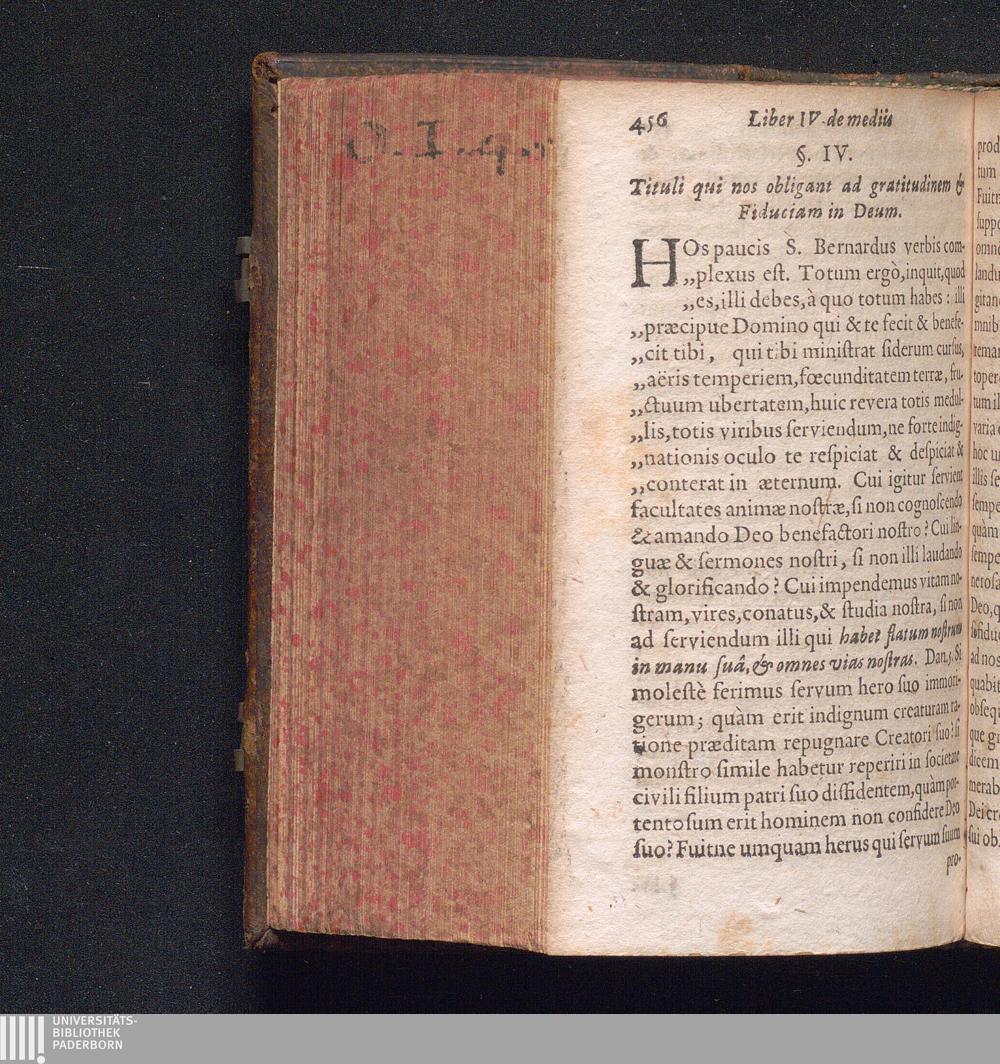 456 Liber IV. de mediis
§. IV.
Tituli qui nos obligant ad gratitudinem &
Fiduciam in Deum.
HOs paucis S. Bernardus verbis com-
„plexus eſt. Totum ergò, inquit, quod
„es, illi debes, à quo totum habes: illi
„præcipue Domino qui & te fecit & benefe-
„cit tibi, qui tibi miniſtrat ſiderum curſus,
„aëris temperiem, fœcunditatem terræ, fru-
„ctuum ubertatem, huic revera totis medul-
„lis, totis viribus ſerviendum, ne forte indig-
„nationis oculo te reſpiciat & deſpiciat &
„conterat in æternum. Cui igitur ſervient
facultates animæ noſtræ, ſi non cognoſcendo
& amando Deo benefactori noſtro? Cui lin-
guæ & ſermones noſtri, ſi non illi laudando
& glorificando? Cui impendemus vitam no-
ſtram, vires, conatus, & ſtudia noſtra, ſi non
ad ſerviendum illi qui habet flatum noſtrum
in manu ſuâ, & omnes vias noſtras. Dan. 5. Si
moleſtè ferimus ſervum hero ſuo immori-
gerum; quàm erit indignum creaturam ra-
tione præditam repugnare Creatori ſuo? ſi
monſtro ſimile habetur reperiri in ſocietate
civili filium patri ſuo diffidentem, quàm por-
tentoſum erit hominem non confidere Deo
ſuo? Fuitne umquam herus qui ſervum ſuum
pro-
prod
tum
Fuitn
ſuppo
omne
landu
gitan
mnib
remar
topere
tum il
varia
hoc u
illis ſe
ſempe
quàm
ſempe
neroſa
Deo, q
ad nos
quabit
obſequ
que gr
dicem
merab
Dei cr
ſui ob
UNIVERSITÄTS-
BIBLIOTHEK
PADERBORN